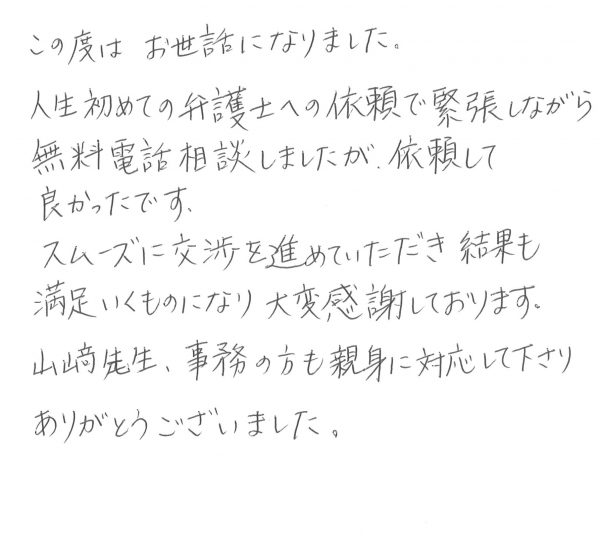 この度は お世話になりました。
人生初めての弁護士への依頼で緊張しながら
無料電話相談しましたが、依頼して
良かったです、
スムーズに交渉を進めていただき 結果も
満足いくものになり 大変感謝しております。
山﨑先生、事務の方も親身に対応して下さり
ありがとうございました。